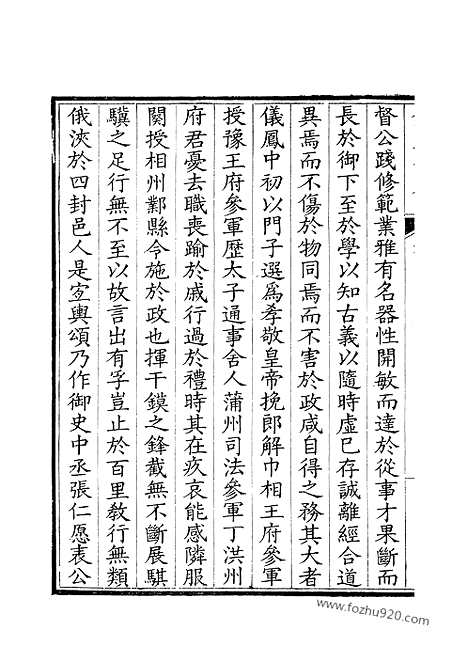 督公踐修範業雅有名器性開敏而達於從事才果斷而
長於御下至於學以知古義以隨時虛已存誠離經合道
異焉而不傷於物同焉而不害於政咸自得之務其大者
儀鳳中初以門子選爲孝敬皇帝挽郎解巾相王府參軍
授豫王府參軍歷太子通事舍人蒲州司法參軍丁洪州
府君憂去職喪踰於戚行過於禮時其在疚哀能感隣服
闋授相州鄴縣令施於政也揮干鏌之鋒截無不斷展騏
驥之足行無不至以故言出有孚豈止於百里敎行無類
俄浹於四封邑人是宜輿頌乃作御史中丞張仁愿表公
www.fozhu920.com